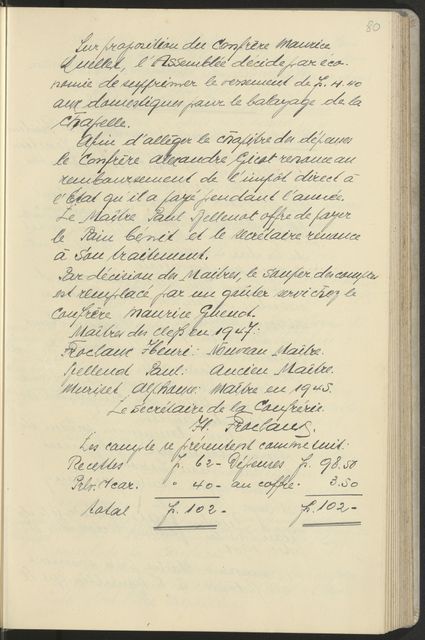 80
Sur proposition du Confrère Maurice
Quellet, l'Assemblée décide par éco-
nomie de supprimer le versement de fr. 4.40
aux domestiques pour le balayage de la
Chapelle.
Afin d'alléger le chapitre des dépenses
le Confrère Alexandre Gicot renonce au
remboursement de l'impôt direct à
l'Etat qu'il a payé pendant l'année.
Le Maître Paul Bellenot offre de payer
le Pain bénit et le secrétaire renonce
à son traitement.
Par décision des Maîtres, le souper des comptes
est remplacé par un goûter servi chez le
confrère Maurice Guenot.
Maîtres des clefs en 1947:
Froclaux Henri: Nouveau Maître.
Bellenot Paul: Ancien Maître.
Muriset Alphonse: Maître en 1945.
Le secrétaire de la Confrérie
H. Froclaux.
Les compte se présentent comme suit:
Recettes fr. 62- Dépenses fr. 98.50
Prlv. s/car. " 40- au coffre- 3.50
total fr. 102- fr. 102-